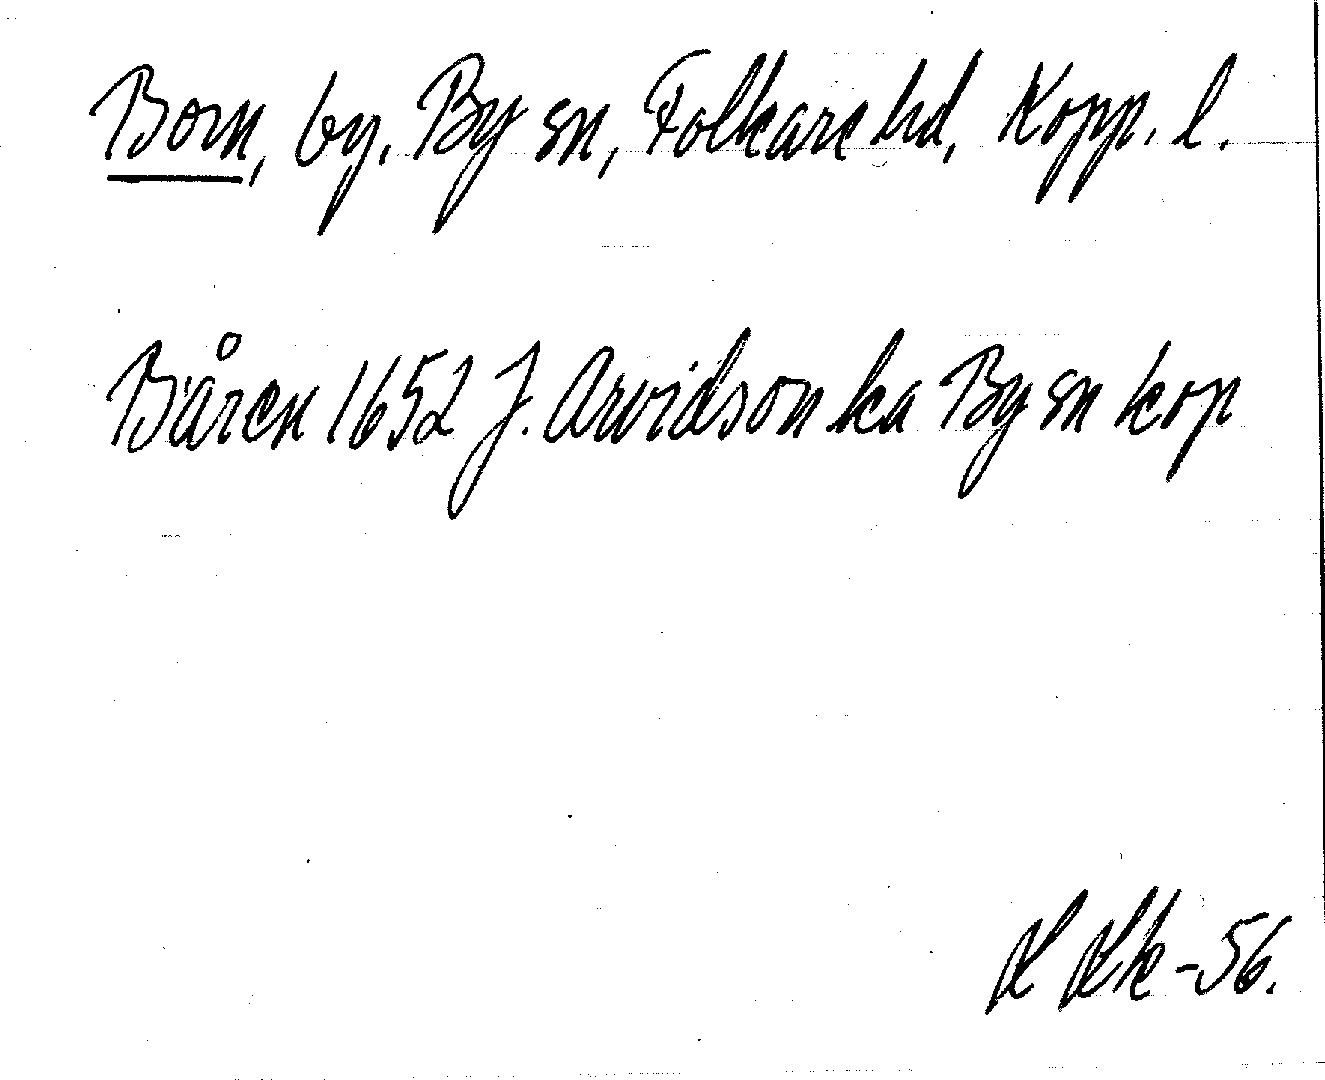 Born, by, By sn, Folkare hd, Kopp. l.
Båren 1652 J. Arvidson ka By sn kop
-56.